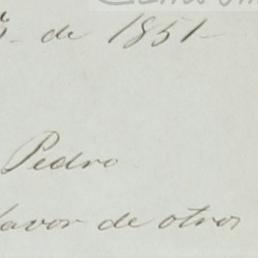 de 1851
Pedro
favor de otros